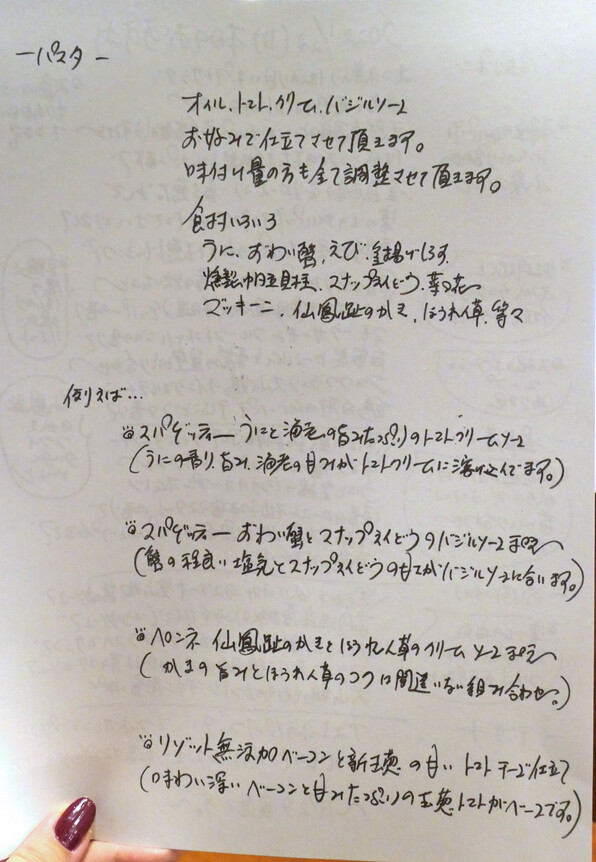 ーパスター
オイル、トマト、クリーム、バジルソース
お好みで仕立てさせて頂きます。
味付け量の方も全て調整させて頂きます。
食材いろいろ
うに、ずわい蟹、えび、釜揚げしらす
燻製帆立貝柱、スナップえいどう、菜の花
ズッキーニ、仙鳳趾のかき、ほうれん草、等々
例えば…
スパゲッティー うにと海老の旨みたっぷりのトマトクリームソース
(うにの香り、旨み、海老の甘みがトマトクリームに溶け込んでます。)
スパゲッティー ずわい蟹とスナップえいどうのバジルソース
(蟹の程良い塩気とスナップえいどうの甘さがバジルソースに合います。)
ペンネ 仙鳳趾のかきとほうれん草のクリームソース
(かきの旨みとほうれん草のコクは間違いない組み合わせ。)
リゾット 無添加ベーコンと新玉葱の甘いトマトチーズ仕立て
(味わい深いベーコンと甘みたっぷりの玉葱、トマトがベースです。)